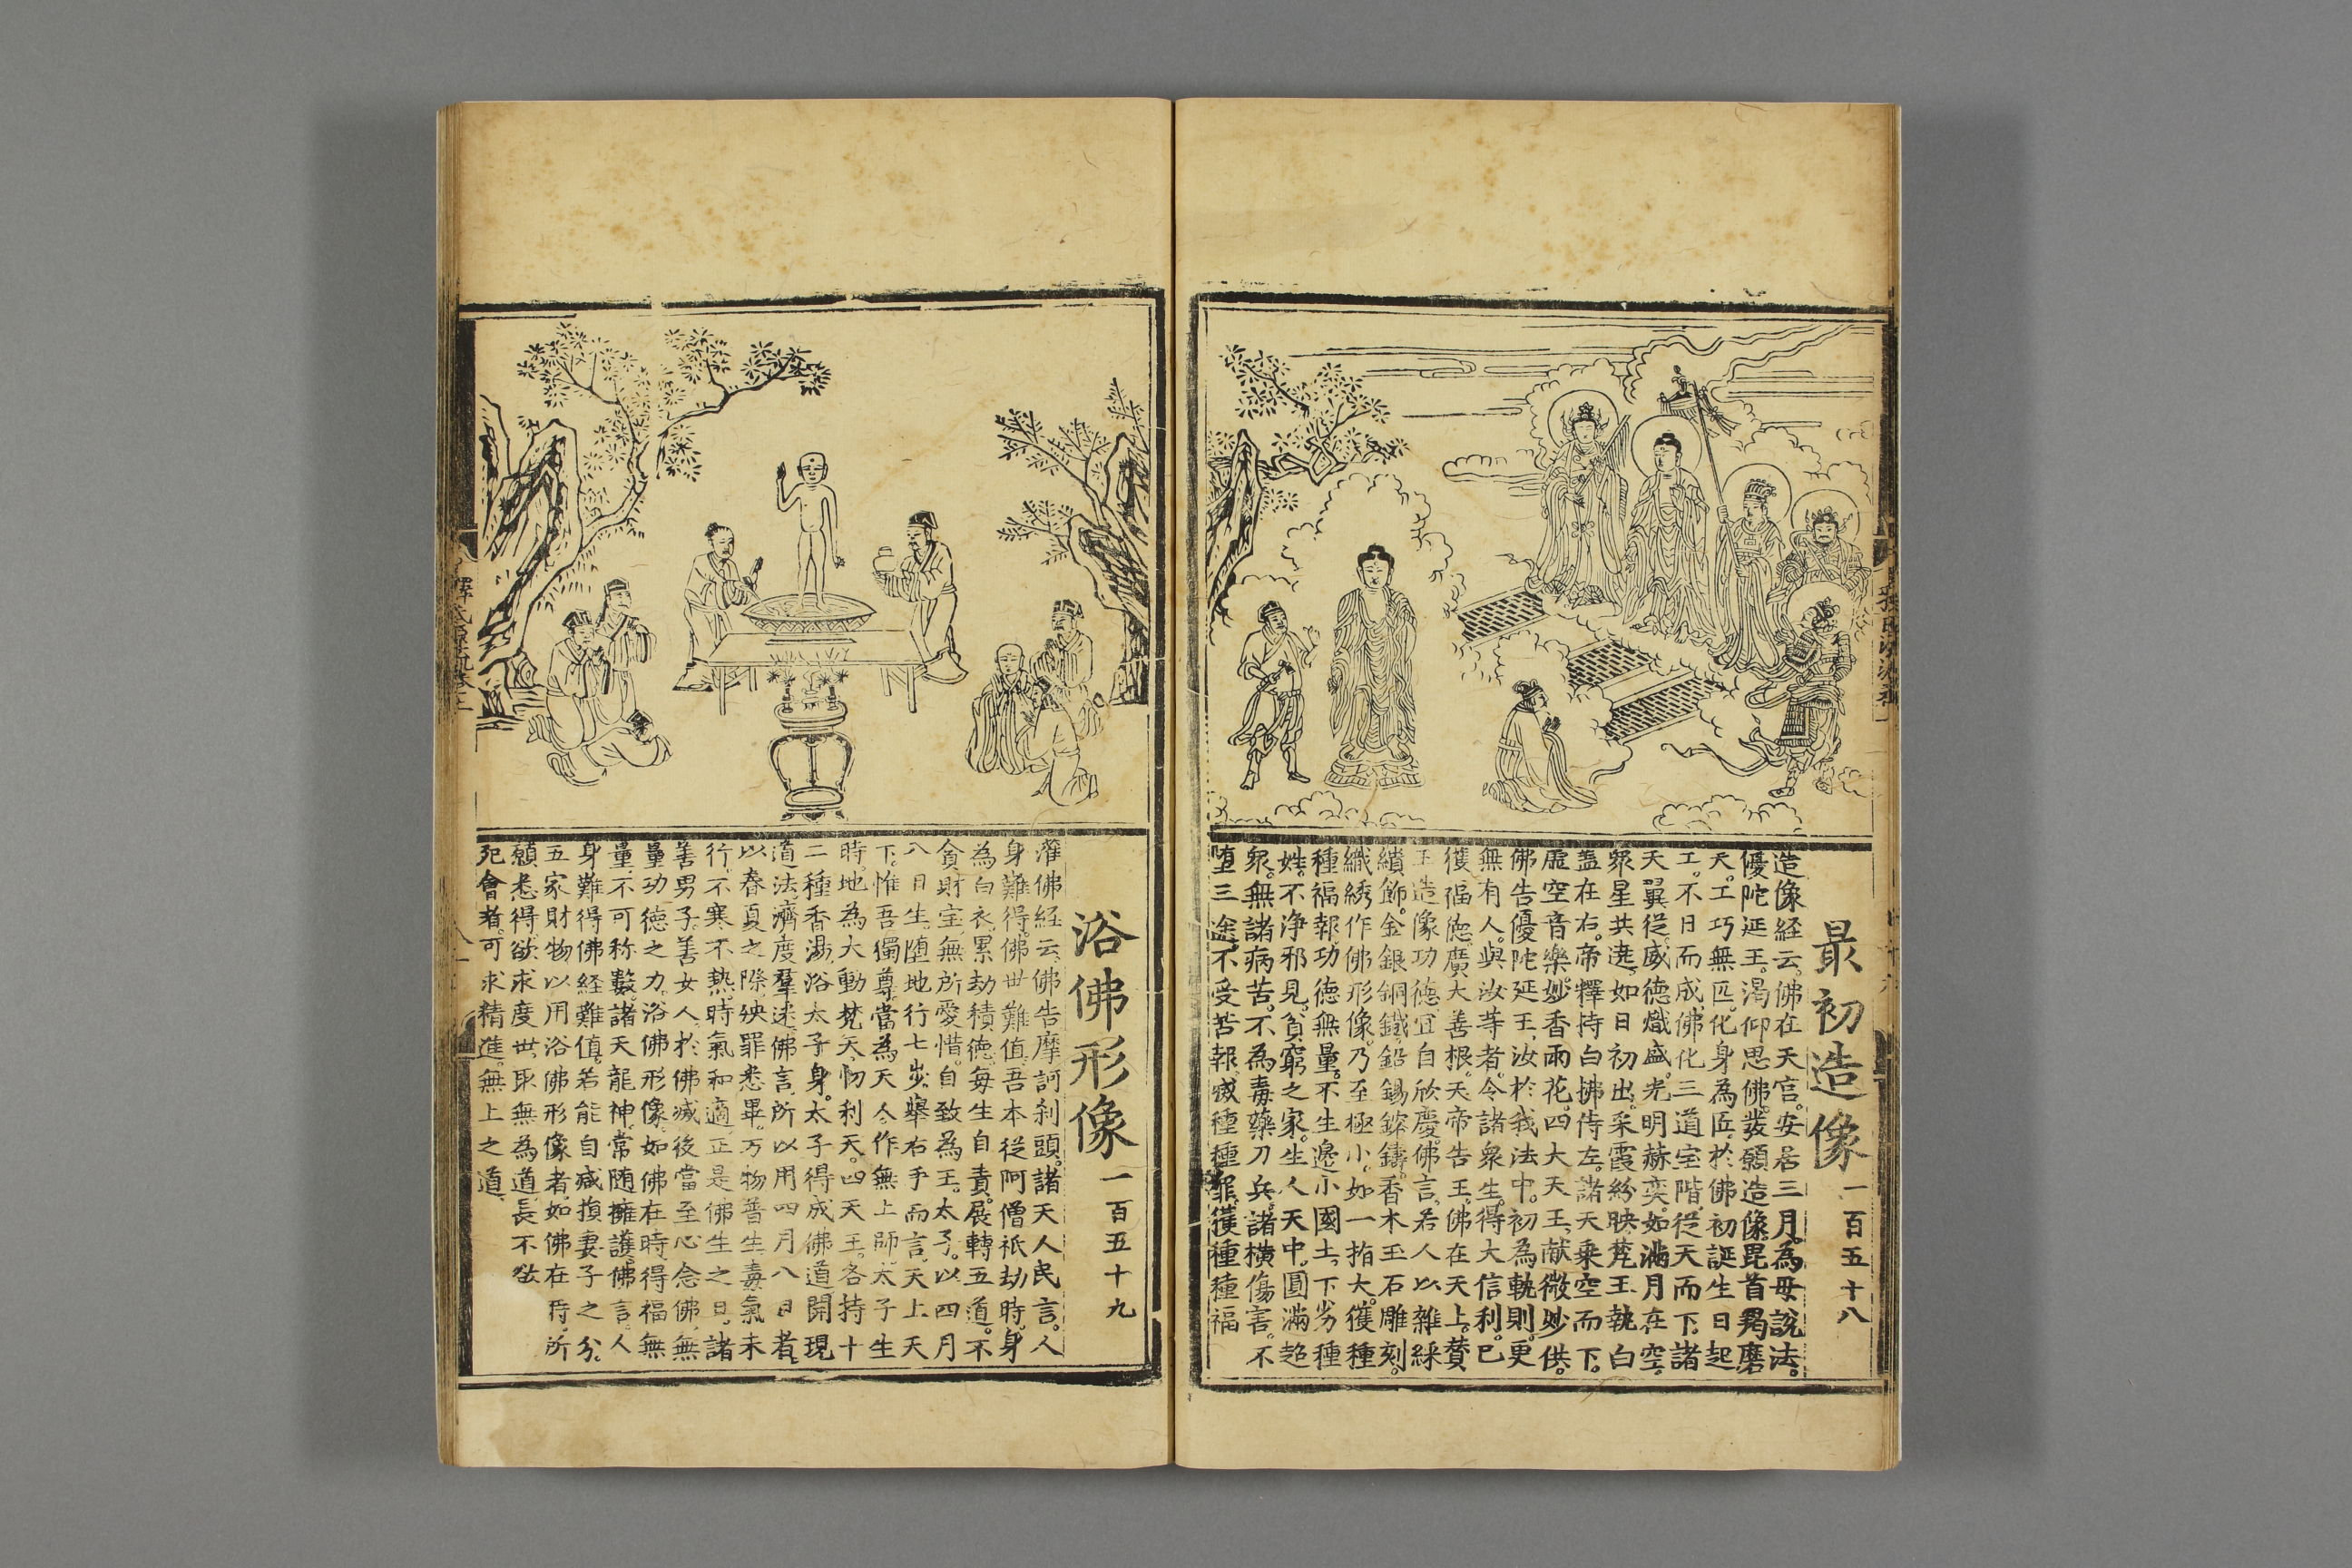 最初造像一百五十八
造像経云。佛在天宫。安居三月。為母說法。
優陀延王。渴仰思佛。發願造像。毘首羯磨
天。工巧無匹。化身為匠。於佛初誕生日起
工。不日而成。佛化三道宝階。従天而下。諸
天翼従。威德熾盛。光明赫奕。如滿月在空。
眾星共遶。如日初出。采霞紛映。梵王執白
盖在右。帝釋持白拂侍左。諸天乗空而下。
虛空音樂。妙香雨花。四大天王。献微妙供。
佛告優陀延王。汝於我法中。初為軌則。更
無有人。與汝等者。令諸衆生。得大信利。已
獲福德。廣大善根。天帝告王。佛在天上。賛
王造像功德。宜自欣慶。佛言。若人以雜綵
繢飾。金銀銅鐵。鉛錫鎔鑄。香木玉石雕刻。
織綉作佛形像。乃至極小。如一指大。獲種
種福報。功德無量。不生邊小國土。下劣種
姓。不浄邪見。貧窮之家。生人天中。圓滿超
衆。無諸病苦。不為毒藥刀兵。諸橫傷害。不
堕三途。不受苦報。滅種種罪。獲種種福
浴佛形像一百五十九
灌佛経云。佛告摩訶刹頭。諸天人民言。人
身難得。佛世難值。吾本従阿僧祇劫時。身
為白衣。累劫積德。每生自責。展轉五道。不
貪財宝。無所愛惜。自致為王。太子。以四月
八日生。堕地行七步。舉右手而言。天上天
下。惟吾獨尊。當為天人。作無上師。太子生
時。地為大動。梵天。忉利天。四天王。各持十
二種香湯。浴太子身。太子得成佛道。開現
道法。濟度羣迷。佛言。所以用四月八日者。
以春夏之際。殃罪悉畢。万物普生。毒氣未
行。不寒不熱。時氣和適。正是佛生之日。諸
善男子。善女人。於佛滅後。當至心念佛。無
量功德之力。浴佛形像。如佛在時。得福無
量。不可称數。諸天龍神。常随擁護。佛言。人
身難得。佛経難值。若能自减損妻子之分。
五家財物。以用浴佛形像者。如佛在時。所
願悉得。欲求度世。取無為道。長不欲
死會者。可求精進。無上之道。